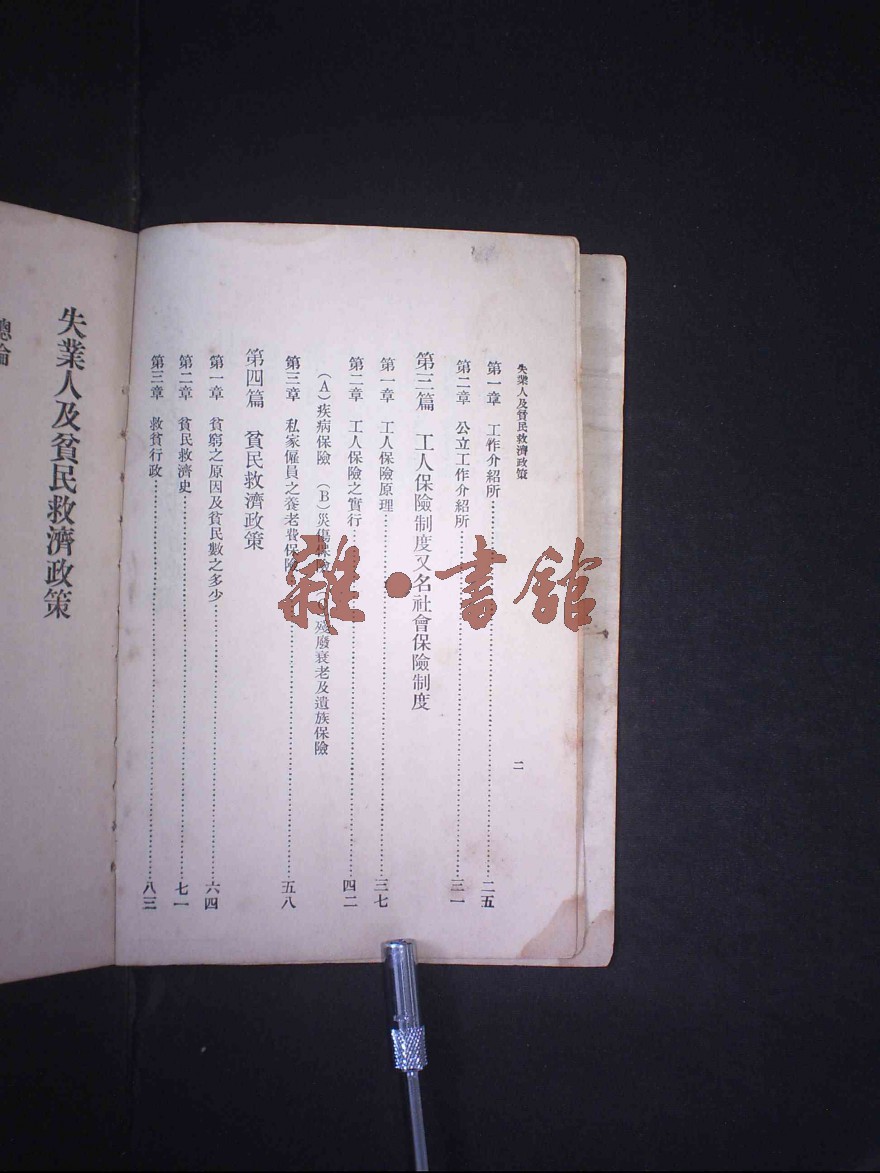 失業人及貧民救濟政策
二
第一章　工作介紹所……二五
第二章　公立工作介紹所……三一
第三篇　工人保險制度又名社會保險制度
第一章　工人保險原理……三七
第二章　工人保險之實行……四二
（A）疾病保險　（B）災傷保險　殘廢衰老及遺族保險
第三章　私家僱員之養老費保險……五八
第四篇　貧民救濟政策
第一章　貧窮之原因及貧民數之多少……六四
第二章　貧民救濟史……七一
第三章　救貧行政……八三
失業人及貧民救濟政策
總論
雜·書館